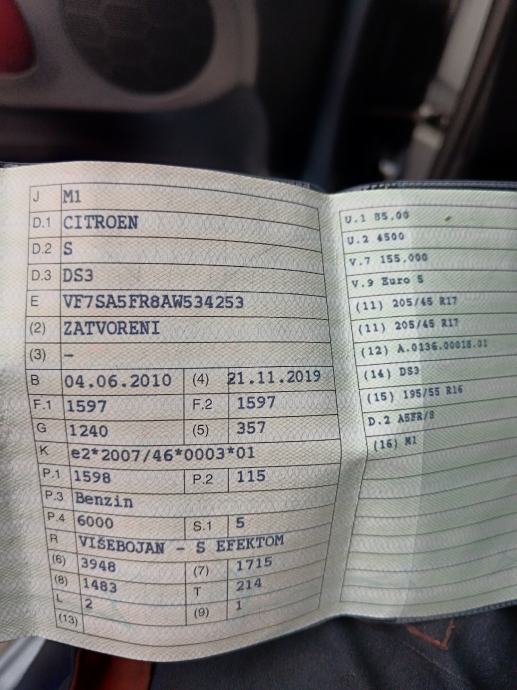 J M1
D.1 CITROEN
D.2 S
D.3 DS3
E VF7SA5FR8AW534253
(2) ZATVORENI
(3) -
B 04.06.2010 (4) 21.11.2019
F.1 1597 F.2 1597
G 1240 (5) 357
K e2*2007/46*0003*01
P.1 1598 P.2 115
P.3 Benzin
P.4 6000 S.1 5
R VIŠEBOJAN - S EFEKTOM
(6) 3948 (7) 1715
(8) 1483 T 214
L 2 (9) 1
(13)
U.1 85,00
U.2 4500
V.7 155,000
V.9 Euro 5
(11) 205/45 R17
(11) 205/45 R17
(12) A.0136.00018.01
(14) DS3
(15) 195/55 R16
D.2 A5FR/S
(16) M1